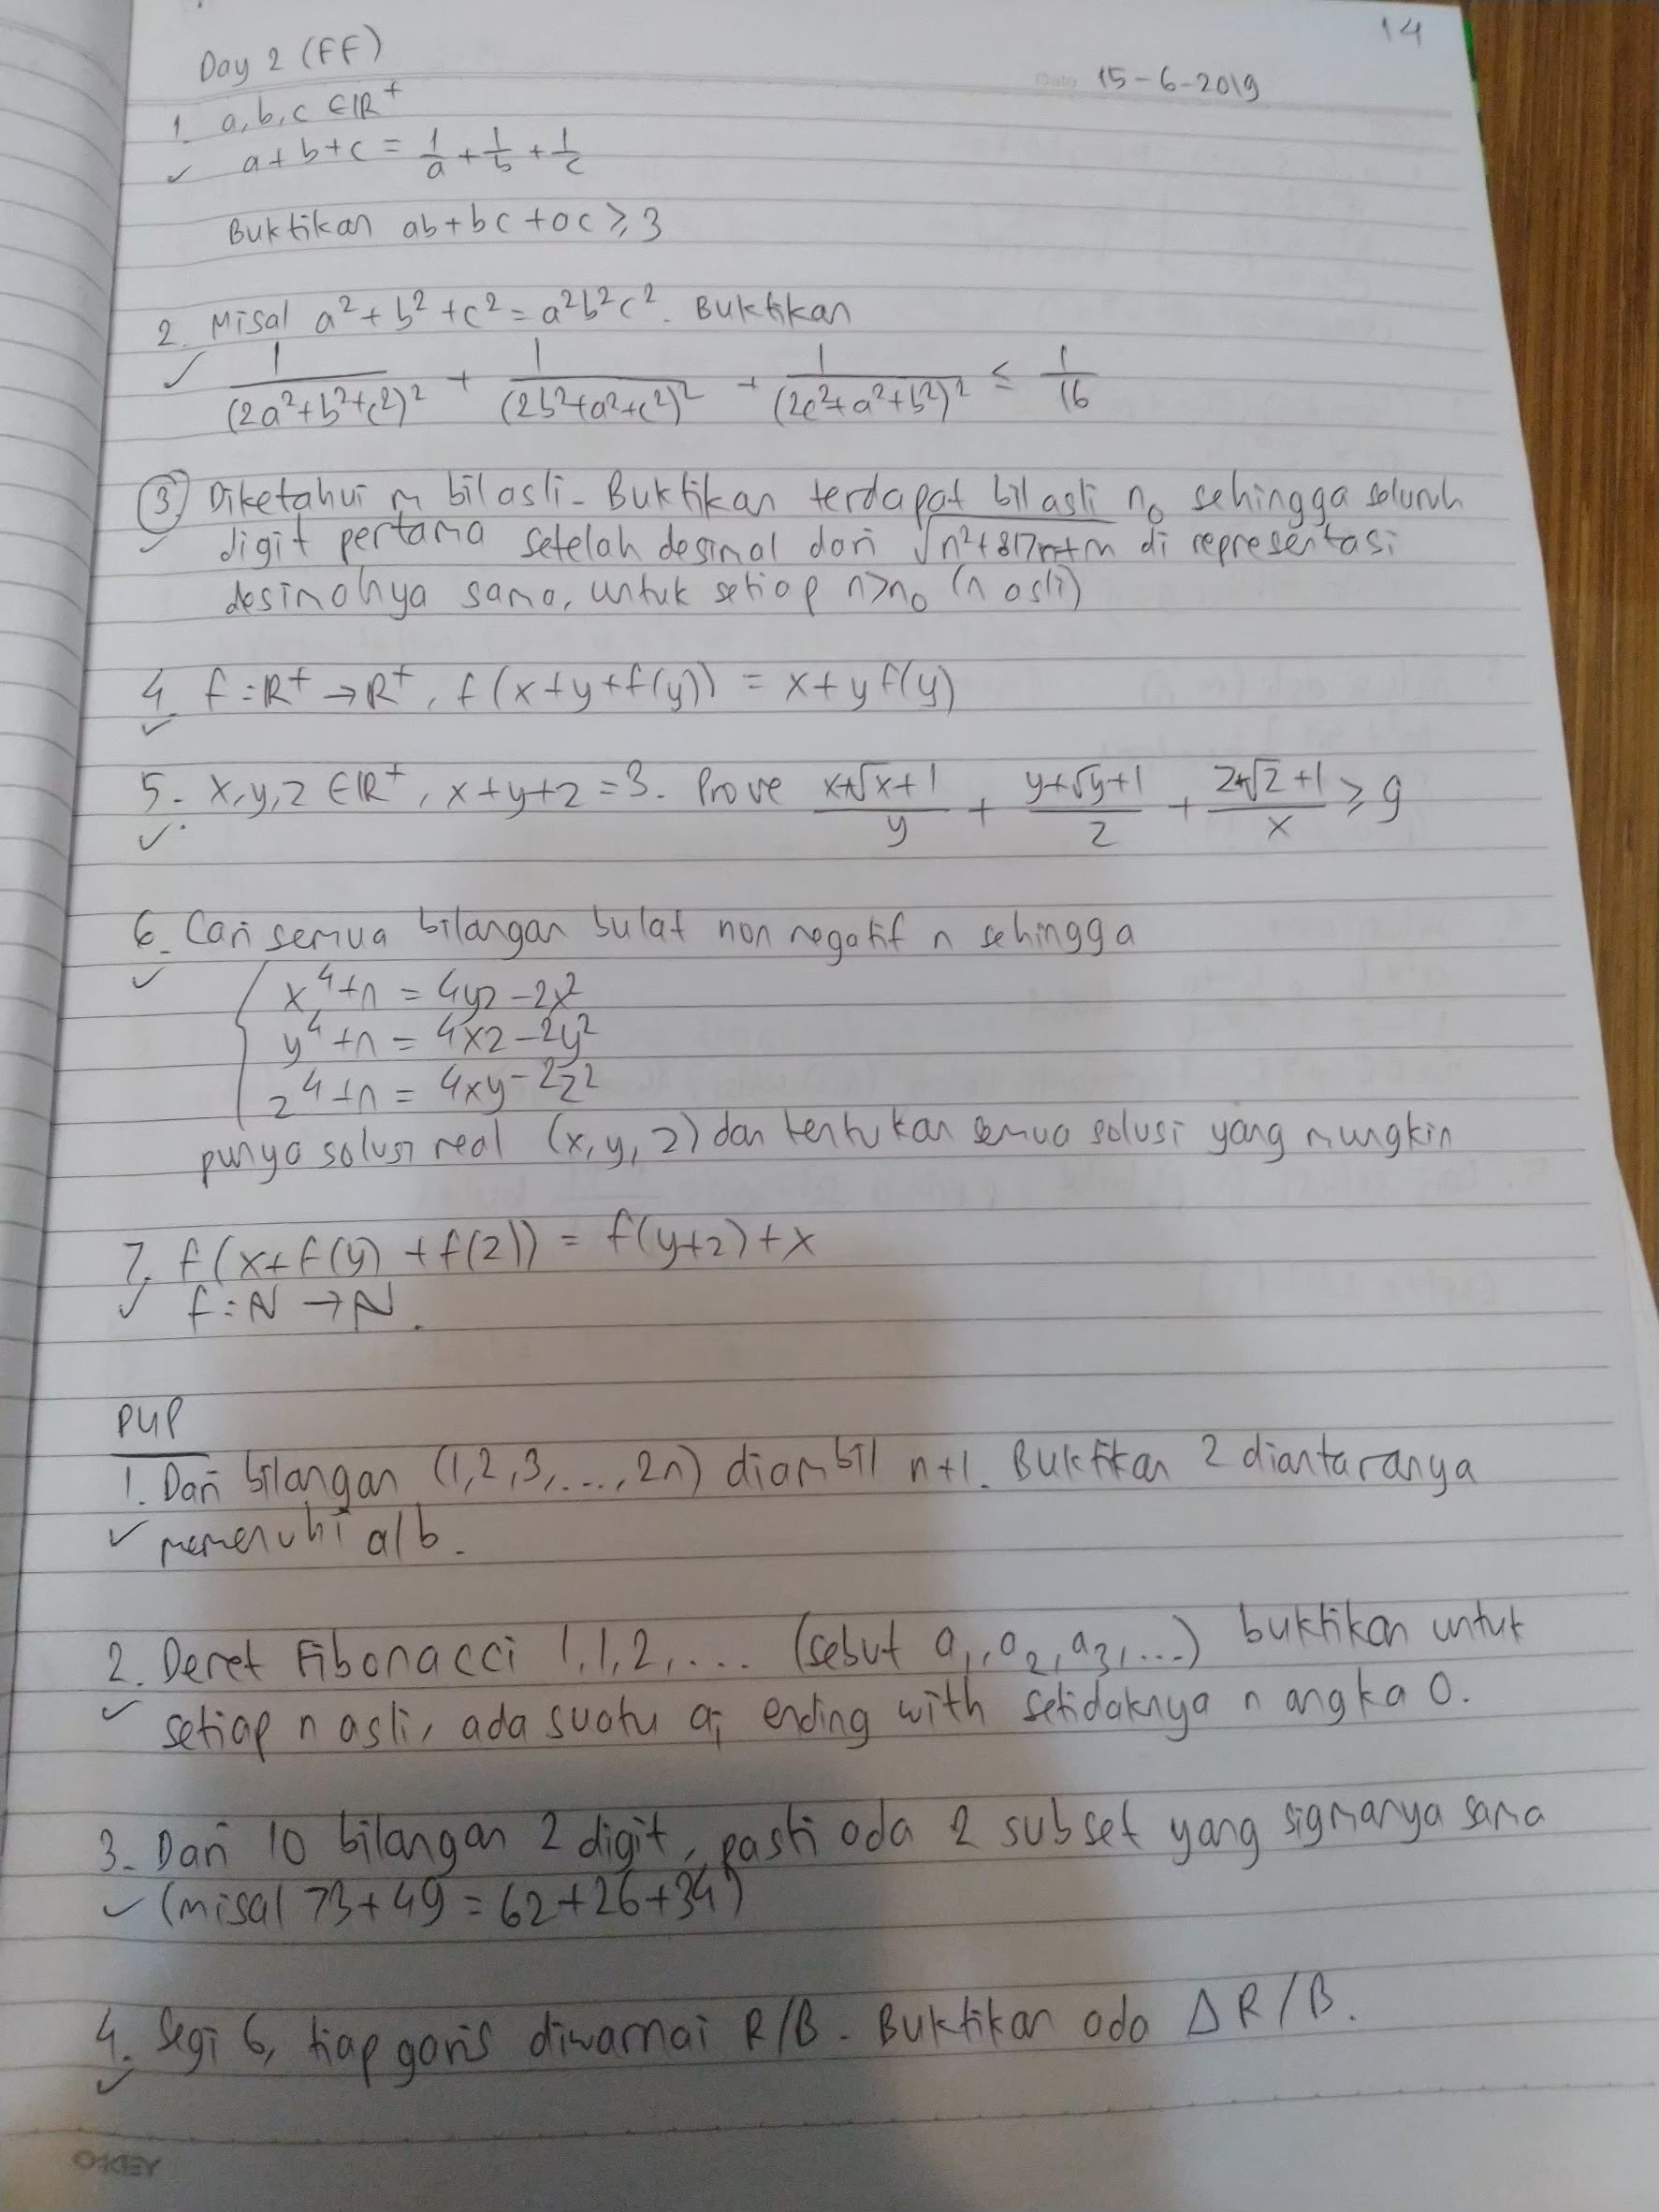 14
Day 2 (FF)
Date 15-6-2019
1. a, b, c ∈ ℝ⁺
✓ a+b+c = 1/a + 1/b + 1/c
Buktikan ab+bc+ac ≥ 3
2. Misal a²+b²+c² = a²b²c². Buktikan
✓ 1/(2a²+b²+c²)² + 1/(2b²+a²+c²)² + 1/(2c²+a²+b²)² ≤ 1/16
③ Diketahui m bil asli. Buktikan terdapat bil asli n₀ sehingga seluruh
✓ digit pertama setelah desimal dari √(n²+817n+m) di representasi
desimalnya sama, untuk setiap n>n₀ (n asli)
4. f:ℝ⁺→ℝ⁺, f(x+y+f(y)) = x+yf(y)
✓
5. x,y,z ∈ ℝ⁺, x+y+z=3. Prove (x+√x+1)/y + (y+√y+1)/z + (z+√z+1)/x ≥ 9
✓
6. Cari semua bilangan bulat non negatif n sehingga
✓
x⁴+n = 4yz-2x²
y⁴+n = 4xz-2y²
z⁴+n = 4xy-2z²
punya solusi real (x,y,z) dan tentukan semua solusi yang mungkin
7. f(x+f(y)+f(z)) = f(y+z)+x
✓ f:ℕ→ℕ.
PHP
1. Dari bilangan (1,2,3,...,2n) diambil n+1. Buktikan 2 diantaranya
✓ memenuhi a|b.
2. Deret Fibonacci 1,1,2,... (sebut a₁,a₂,a₃,...) buktikan untuk
✓ setiap n asli, ada suatu aᵢ ending with setidaknya n angka 0.
3. Dari 10 bilangan 2 digit, pasti ada 2 subset yang sigmanya sama
✓ (misal 73+49 = 62+26+34)
4. Segi 6, tiap garis diwarnai R/B. Buktikan ada Δ R/B.
✓
OKEY